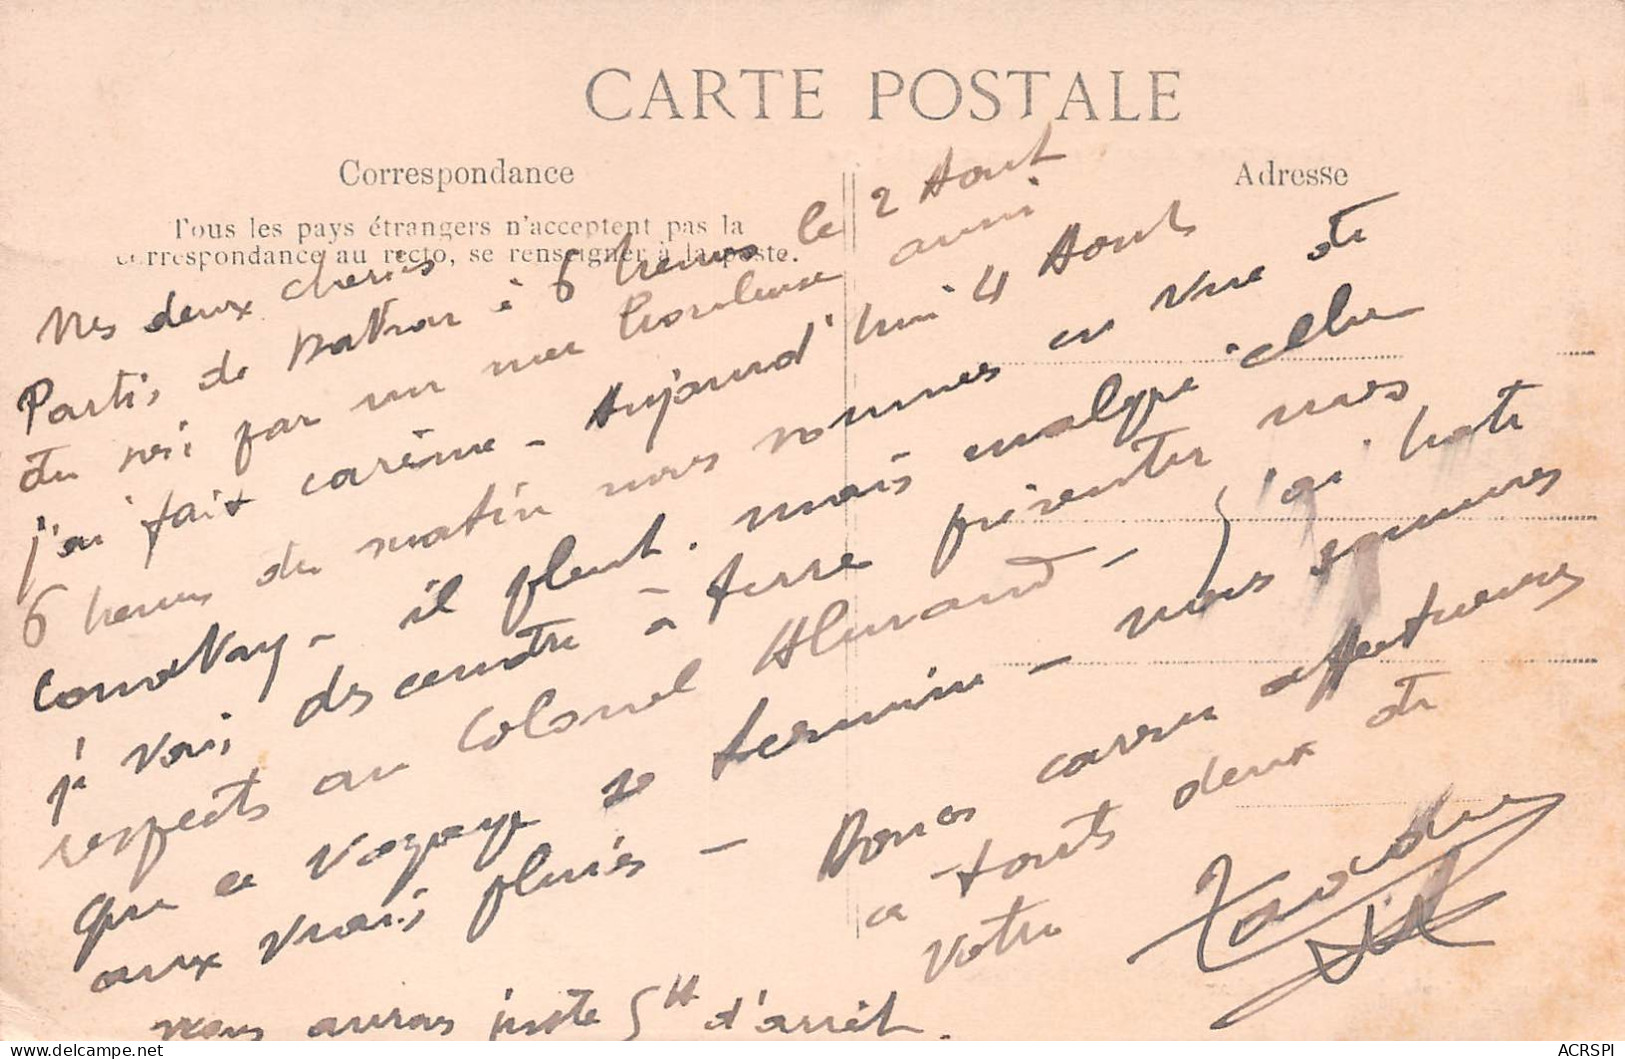 CARTE POSTALE
Correspondance
Adresse
Tous les pays étrangers n'acceptent pas la
correspondance au recto, se renseigner à la poste.
Mes deux cheris
Partis de Dakar à 6 heures le 2 Aout
du soir par un mer houleuse aussi
j'ai fait carême - Aujourd'hui 4 Aout
6 heures du matin nous sommes en vue de
Conakry - il pleut. mais malgré cela
je vais descendre à terre présenter mes
respects au Colonel - J'ai hate
que ce voyage se termine - nous sommes
aux vrais pluies - Bones affectueuses
a touts deux de
votre
nous avons juste 5H d'arrêt.
ACRSPI